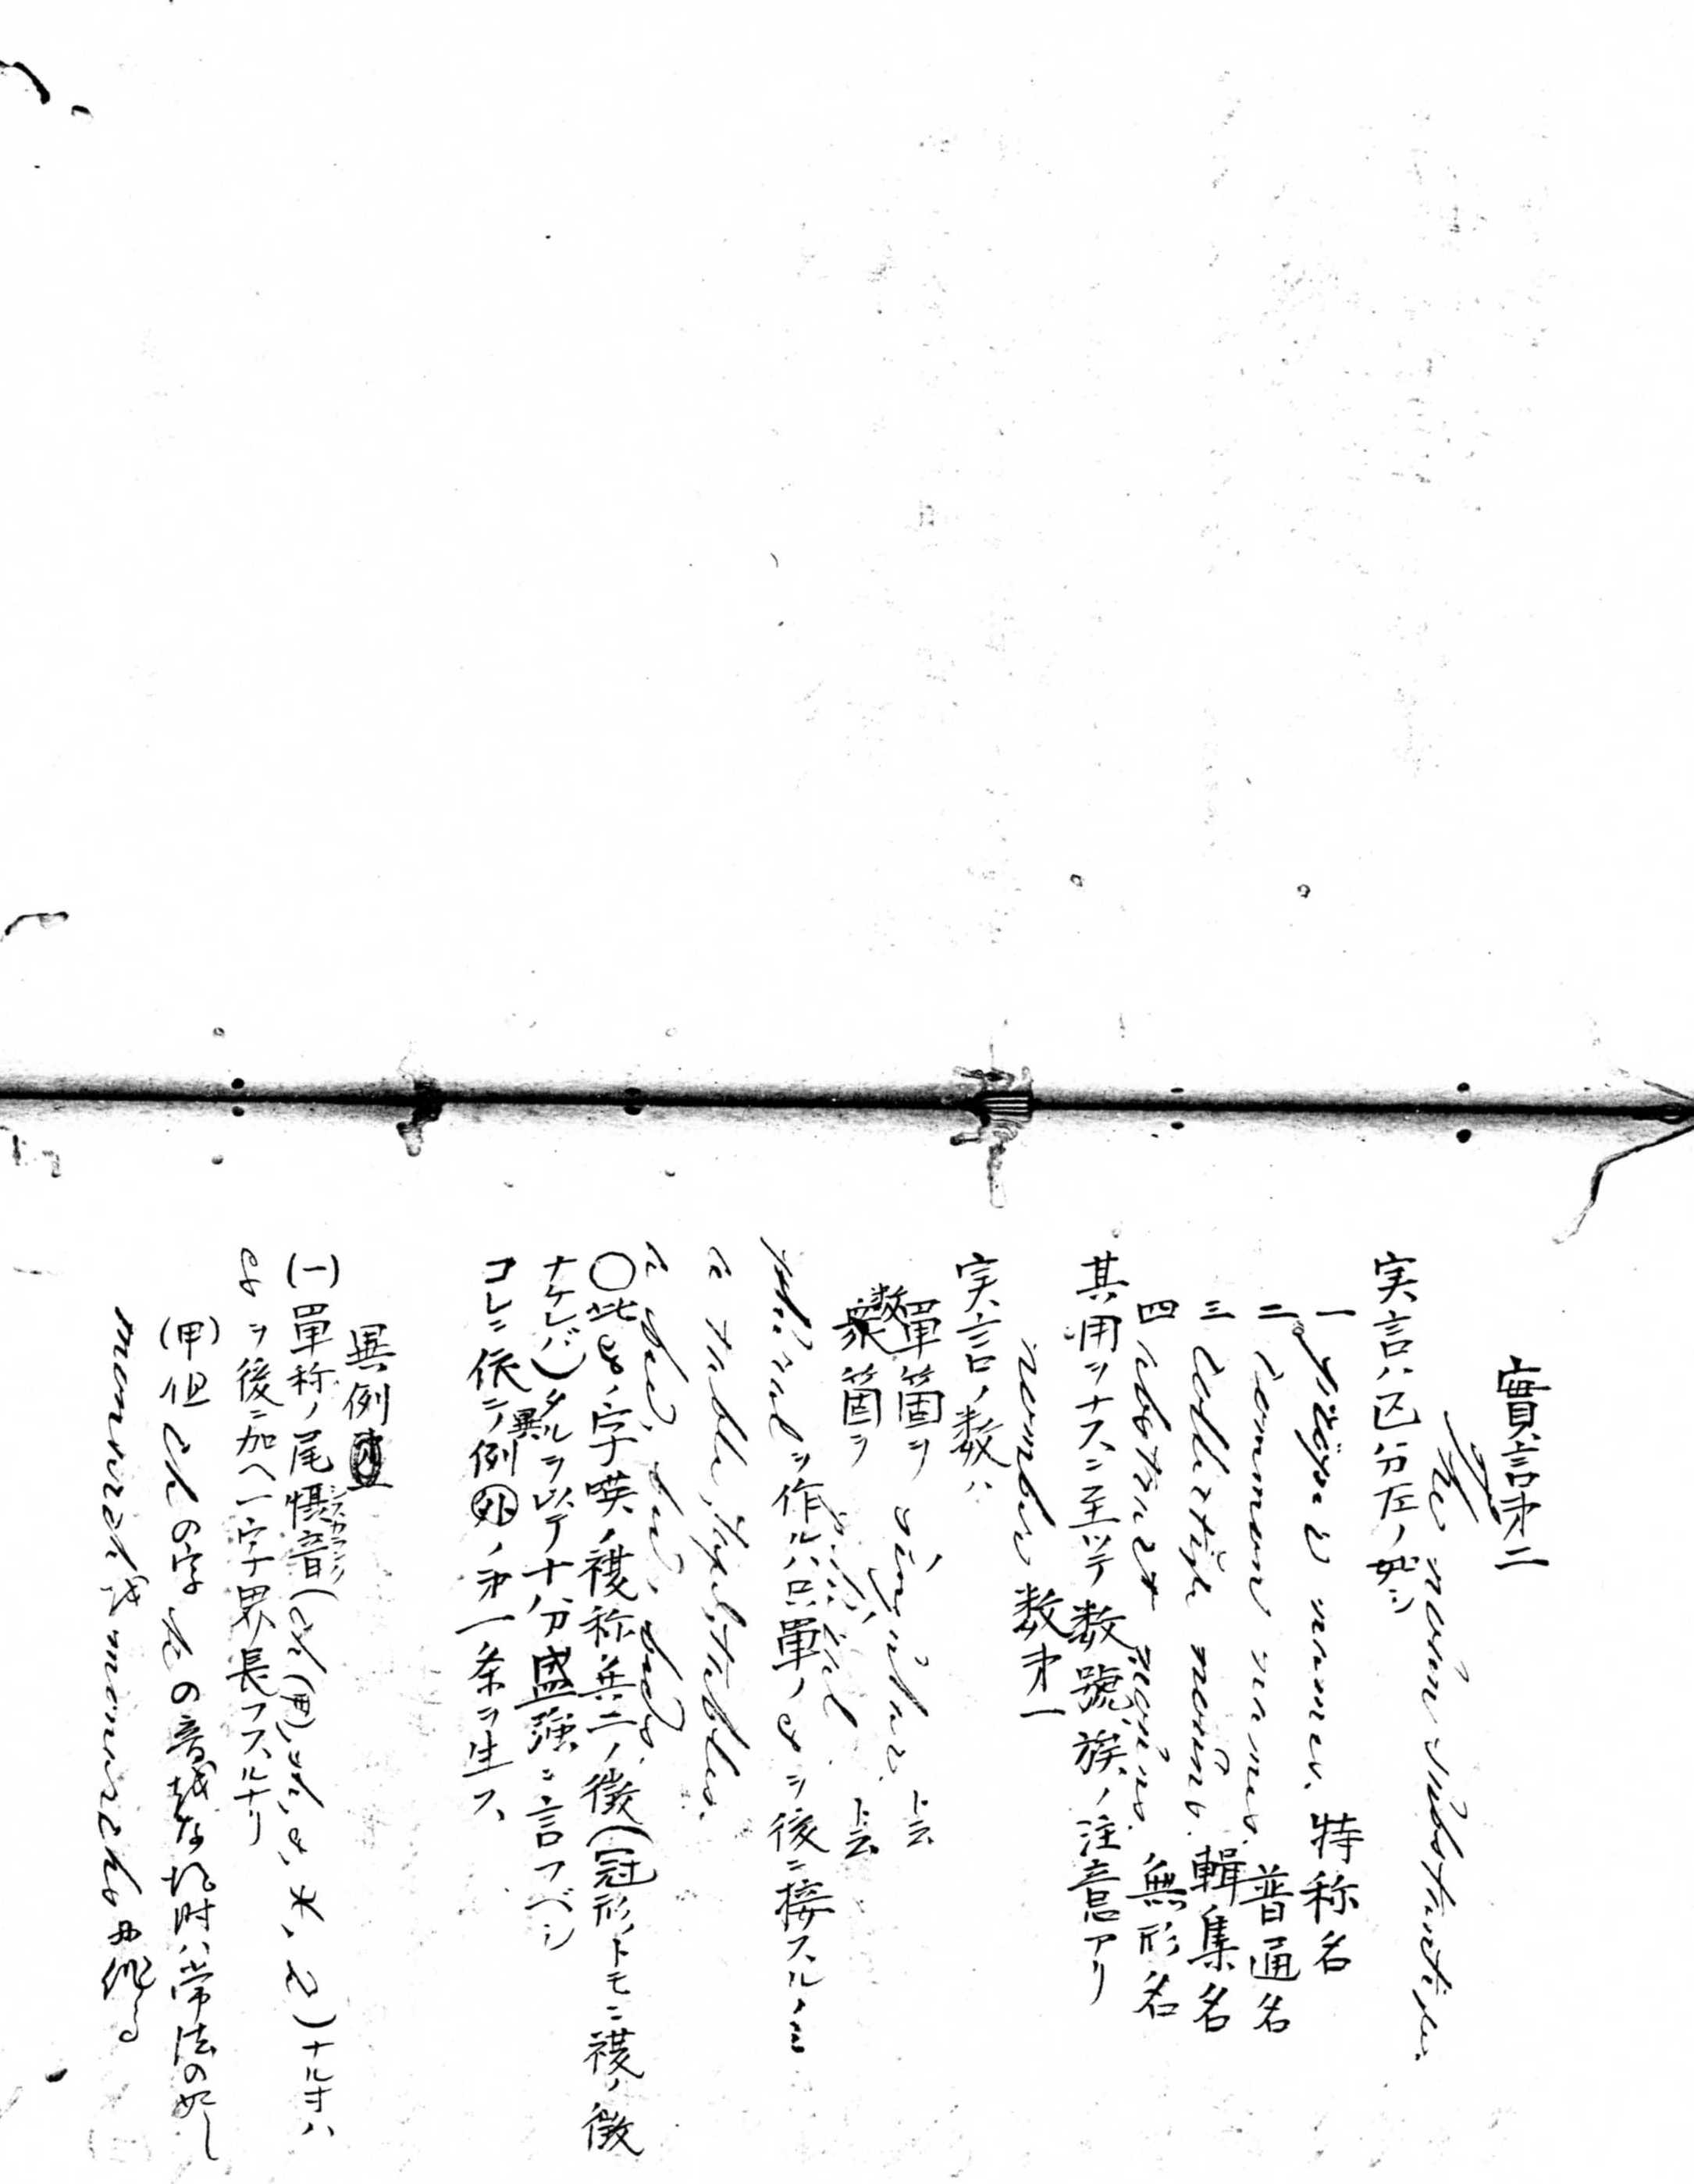 實言第二
The noun substantive.
実言ハ区分左ノ如シ
一 proper names. 特称名
二 Common names. 普通名
三 Collective nouns. 輯集名
四 abstract nouns. 無形名
其用ヲナスニ至ツテ数號族ノ注意アリ
number 数第一
実言ノ数ハ
單箇ヲ singular. ト云
衆箇ヲ plural ト云
plural ヲ作ルハ只單ノ s ヲ後ニ接スルノミ
a table, the tables.
〇此 s ノ字暎ノ複称并ニノ徴(冠形ノトモニ複ノ徴
ナケレバ)タルヲ以テ十分盛強ニ言フベシ
コレニ依テ異例ノ第一条ヲ生ス
異例
(一)單称ノ尾慣音(ch( ), sh, s, x, z)ナルオハ
s ヲ後ニ加ヘ一字界長フスルナリ
(甲)但 ch の字 k の音越なす時ハ常法の如し
monarch monarchs